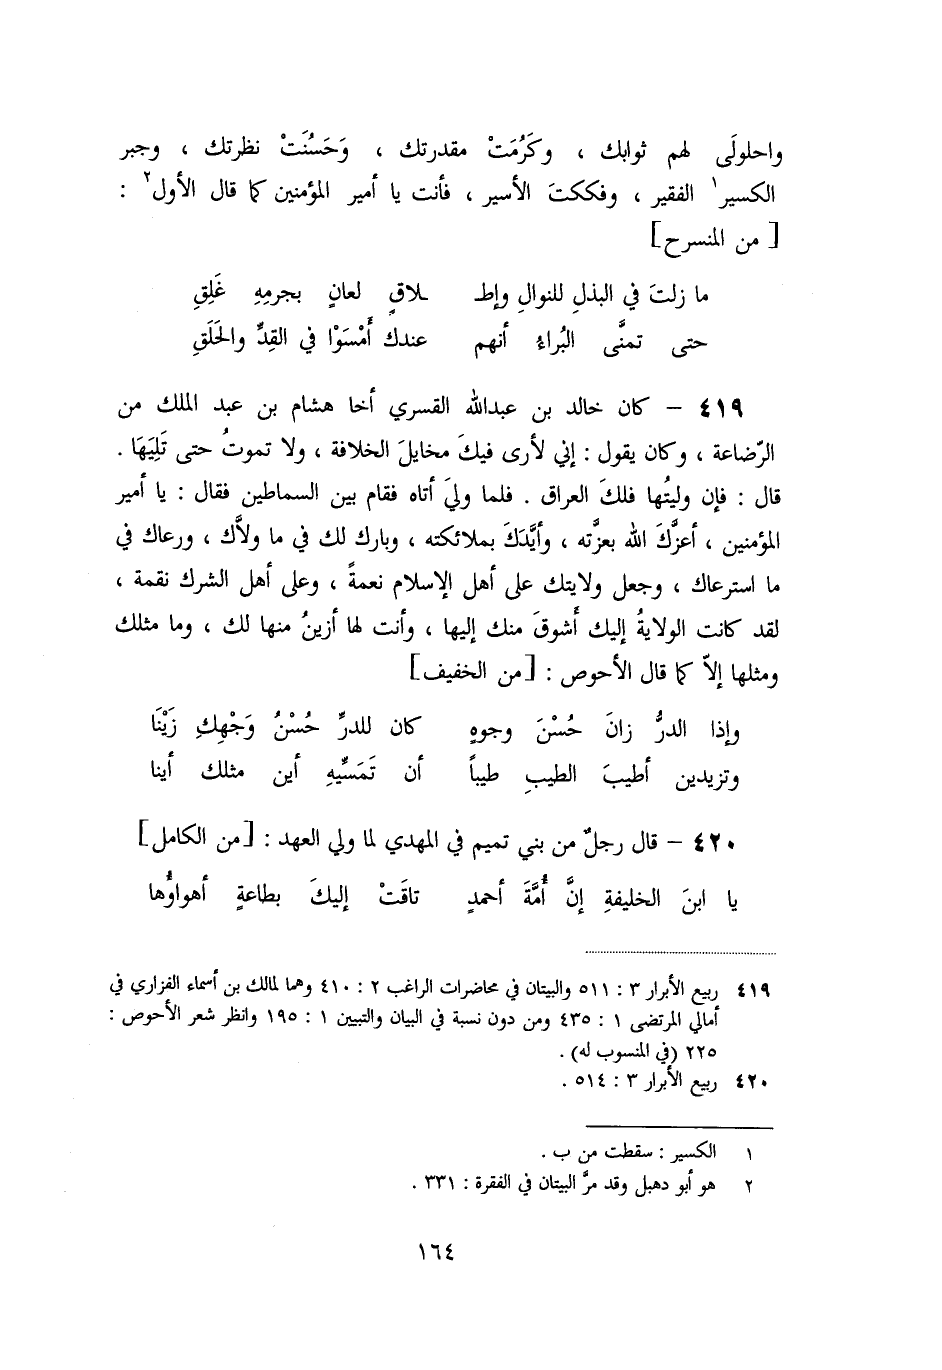 واحلولَى لهم ثوابك ، وكَرُمَتْ مقدرتك ، وَحَسُنَتْ نظرتك ، وجبر
الكسير١ الفقير ، وفككتَ الأسير ، فأنت يا أمير المؤمنين كما قال الأول٢ :
[ من المنسرح]
ما زلتَ في البذلِ للنوالِ وإطـ ـلاقٍ لعانٍ بجرمِهِ غَلِقِ
حتى تمنَّى البُراءُ أنهم عندك أَمْسَوْا في القِدِّ والحَلَقِ
٤١٩ – كان خالد بن عبدالله القسري أخا هشام بن عبد الملك من
الرّضاعة ، وكان يقول : إني لأرى فيكَ مخايلَ الخلافة ، ولا تموتُ حتى تَلِيَهَا .
قال : فإن وليتُها فلكَ العراق . فلما وليَ أتاه فقام بين السماطين فقال : يا أمير
المؤمنين ، أعزَّكَ الله بعزَّته ، وأيَّدَكَ بملائكته ، وبارك لك في ما ولاَّك ، ورعاك في
ما استرعاك ، وجعل ولايتك على أهل الإسلام نعمةً ، وعلى أهل الشرك نقمة ،
لقد كانت الولايةُ إليك أَشوقَ منك إليها ، وأنت لها أزينُ منها لك ، وما مثلك
ومثلها إلاّ كما قال الأحوص : [من الخفيف]
وإذا الدرُّ زانَ حُسْنَ وجوهٍ كان للدرِّ حُسْنُ وَجْهِكِ زَيْنَا
وتزيدين أطيبَ الطيبِ طيباً أن تَمَسِّيهِ أين مثلك أينا
٤٢٠ – قال رجلٌ من بني تميم في المهدي لما ولي العهد : [من الكامل]
يا ابنَ الخليفةِ إنَّ أُمَّةَ أحمدٍ تاقَتْ إليكَ بطاعةٍ أهواؤُها
٤١٩ ربيع الأبرار ٣ : ٥١١ والبيتان في محاضرات الراغب ٢ : ٤١٠ وهما لمالك بن أسماء الفزاري في
أمالي المرتضى ١ : ٤٣٥ ومن دون نسبة في البيان والتبيين ١ : ١٩٥ وانظر شعر الأحوص :
٢٢٥ (في المنسوب له) .
٤٢٠ ربيع الأبرار ٣ : ٥١٤ .
١ الكسير : سقطت من ب .
٢ هو أبو دهبل وقد مرَّ البيتان في الفقرة : ٣٣١ .
١٦٤